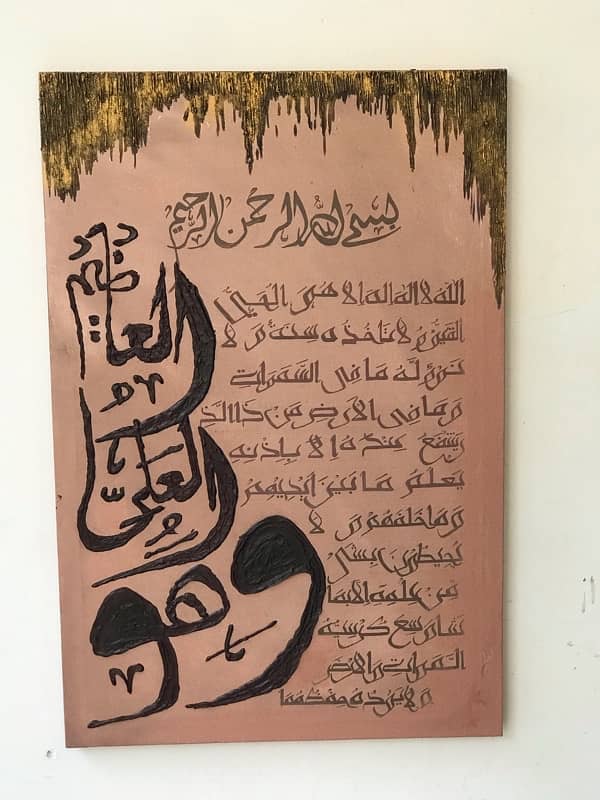 بسم الله الرحمن الرحيم
الله لا اله الا هو الحي
القيوم لا تاخذه سنة و لا
نوم له ما في السموات
و ما في الارض من ذا الذ
يشفع عنده الا باذنه
يعلم ما بين ايديهم
و ما خلفهم و لا
يحيطون بشي
من علمه الا بما
شاء وسع كرسيه
السموات و الارض
و لا يوده حفظهما
وهو
العلي
العظيم